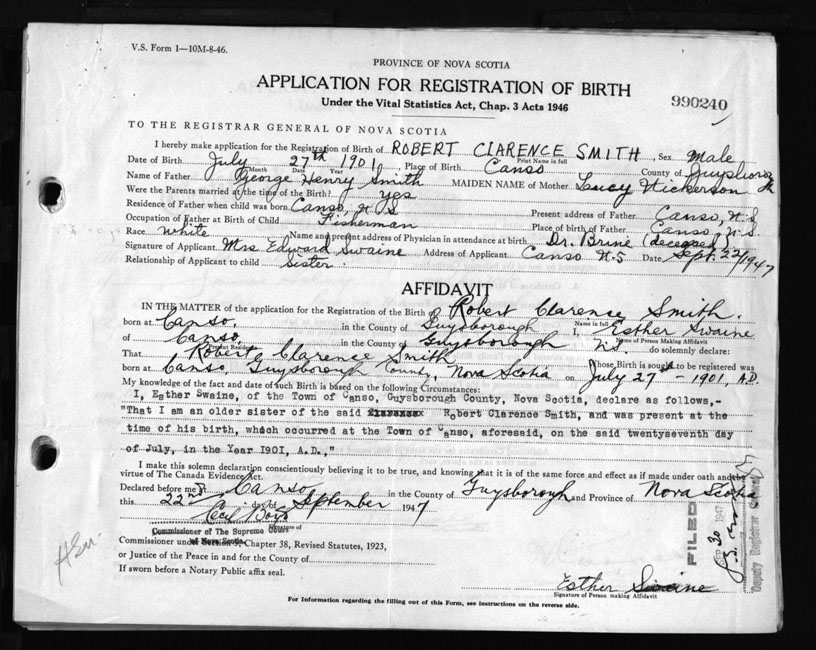 V.S. Form 1—10M-8-46.
PROVINCE OF NOVA SCOTIA
APPLICATION FOR REGISTRATION OF BIRTH
990240
Under the Vital Statistics Act, Chap. 3 Acts 1946
TO THE REGISTRAR GENERAL OF NOVA SCOTIA
I hereby make application for the Registration of Birth of ROBERT CLARENCE SMITH, Sex Male
Print Name in full
Date of Birth July 27th 1901 Place of Birth Canso County of Guysboro
Month Date Year
Name of Father George Henry Smith MAIDEN NAME of Mother Lucy Nickerson
Were the Parents married at the time of the Birth? yes
Residence of Father when child was born Canso, N S Present address of Father Canso, N.S.
Occupation of Father at Birth of Child Fisherman Place of birth of Father Canso, N.S.
Race white Name and present address of Physician in attendance at birth Dr. Brine (deceased)
Signature of Applicant Mrs Edward Swaine Address of Applicant Canso N.S Date Sept. 22/1947
Relationship of Applicant to child Sister.
AFFIDAVIT
IN THE MATTER of the application for the Registration of the Birth of Robert Clarence Smith.
Name in full
born at Canso, in the County of Guysborough I, Esther Swaine
Name of Person Making Affidavit
of Canso, in the County of Guysborough N.S. do solemnly declare:
Present Residence
That Robert Clarence Smith whose Birth is sought to be registered was
born at Canso, Guysborough County, Nova Scotia on July 27th - 1901, A.D.
My knowledge of the fact and date of such Birth is based on the following Circumstances:
I, Esther Swaine, of the Town of Canso, Guysborough County, Nova Scotia, declare as follows,-
"That I am an older sister of the said Robert Clarence Smith, and was present at the
time of his birth, which occurred at the Town of Canso, aforesaid, on the said twentyseventh day
of July, in the Year I90I, A.D.,"
I make this solemn declaration conscientiously believing it to be true, and knowing that it is of the same force and effect as if made under oath and by
virtue of The Canada Evidence Act.
Declared before me at Canso in the County of Guysborough and Province of Nova Scotia
this 22nd day of September 1947
Signature of
Commissioner of The Supreme Court
of Nova Scotia
Commissioner under Section 9, Chapter 38, Revised Statutes, 1923,
or Justice of the Peace in and for the County of
If sworn before a Notary Public affix seal.
Esther Swaine
Signature of Person making Affidavit
For Information regarding the filling out of this Form, see instructions on the reverse side.
FILED
Sep 30 1947
Deputy Registrar General